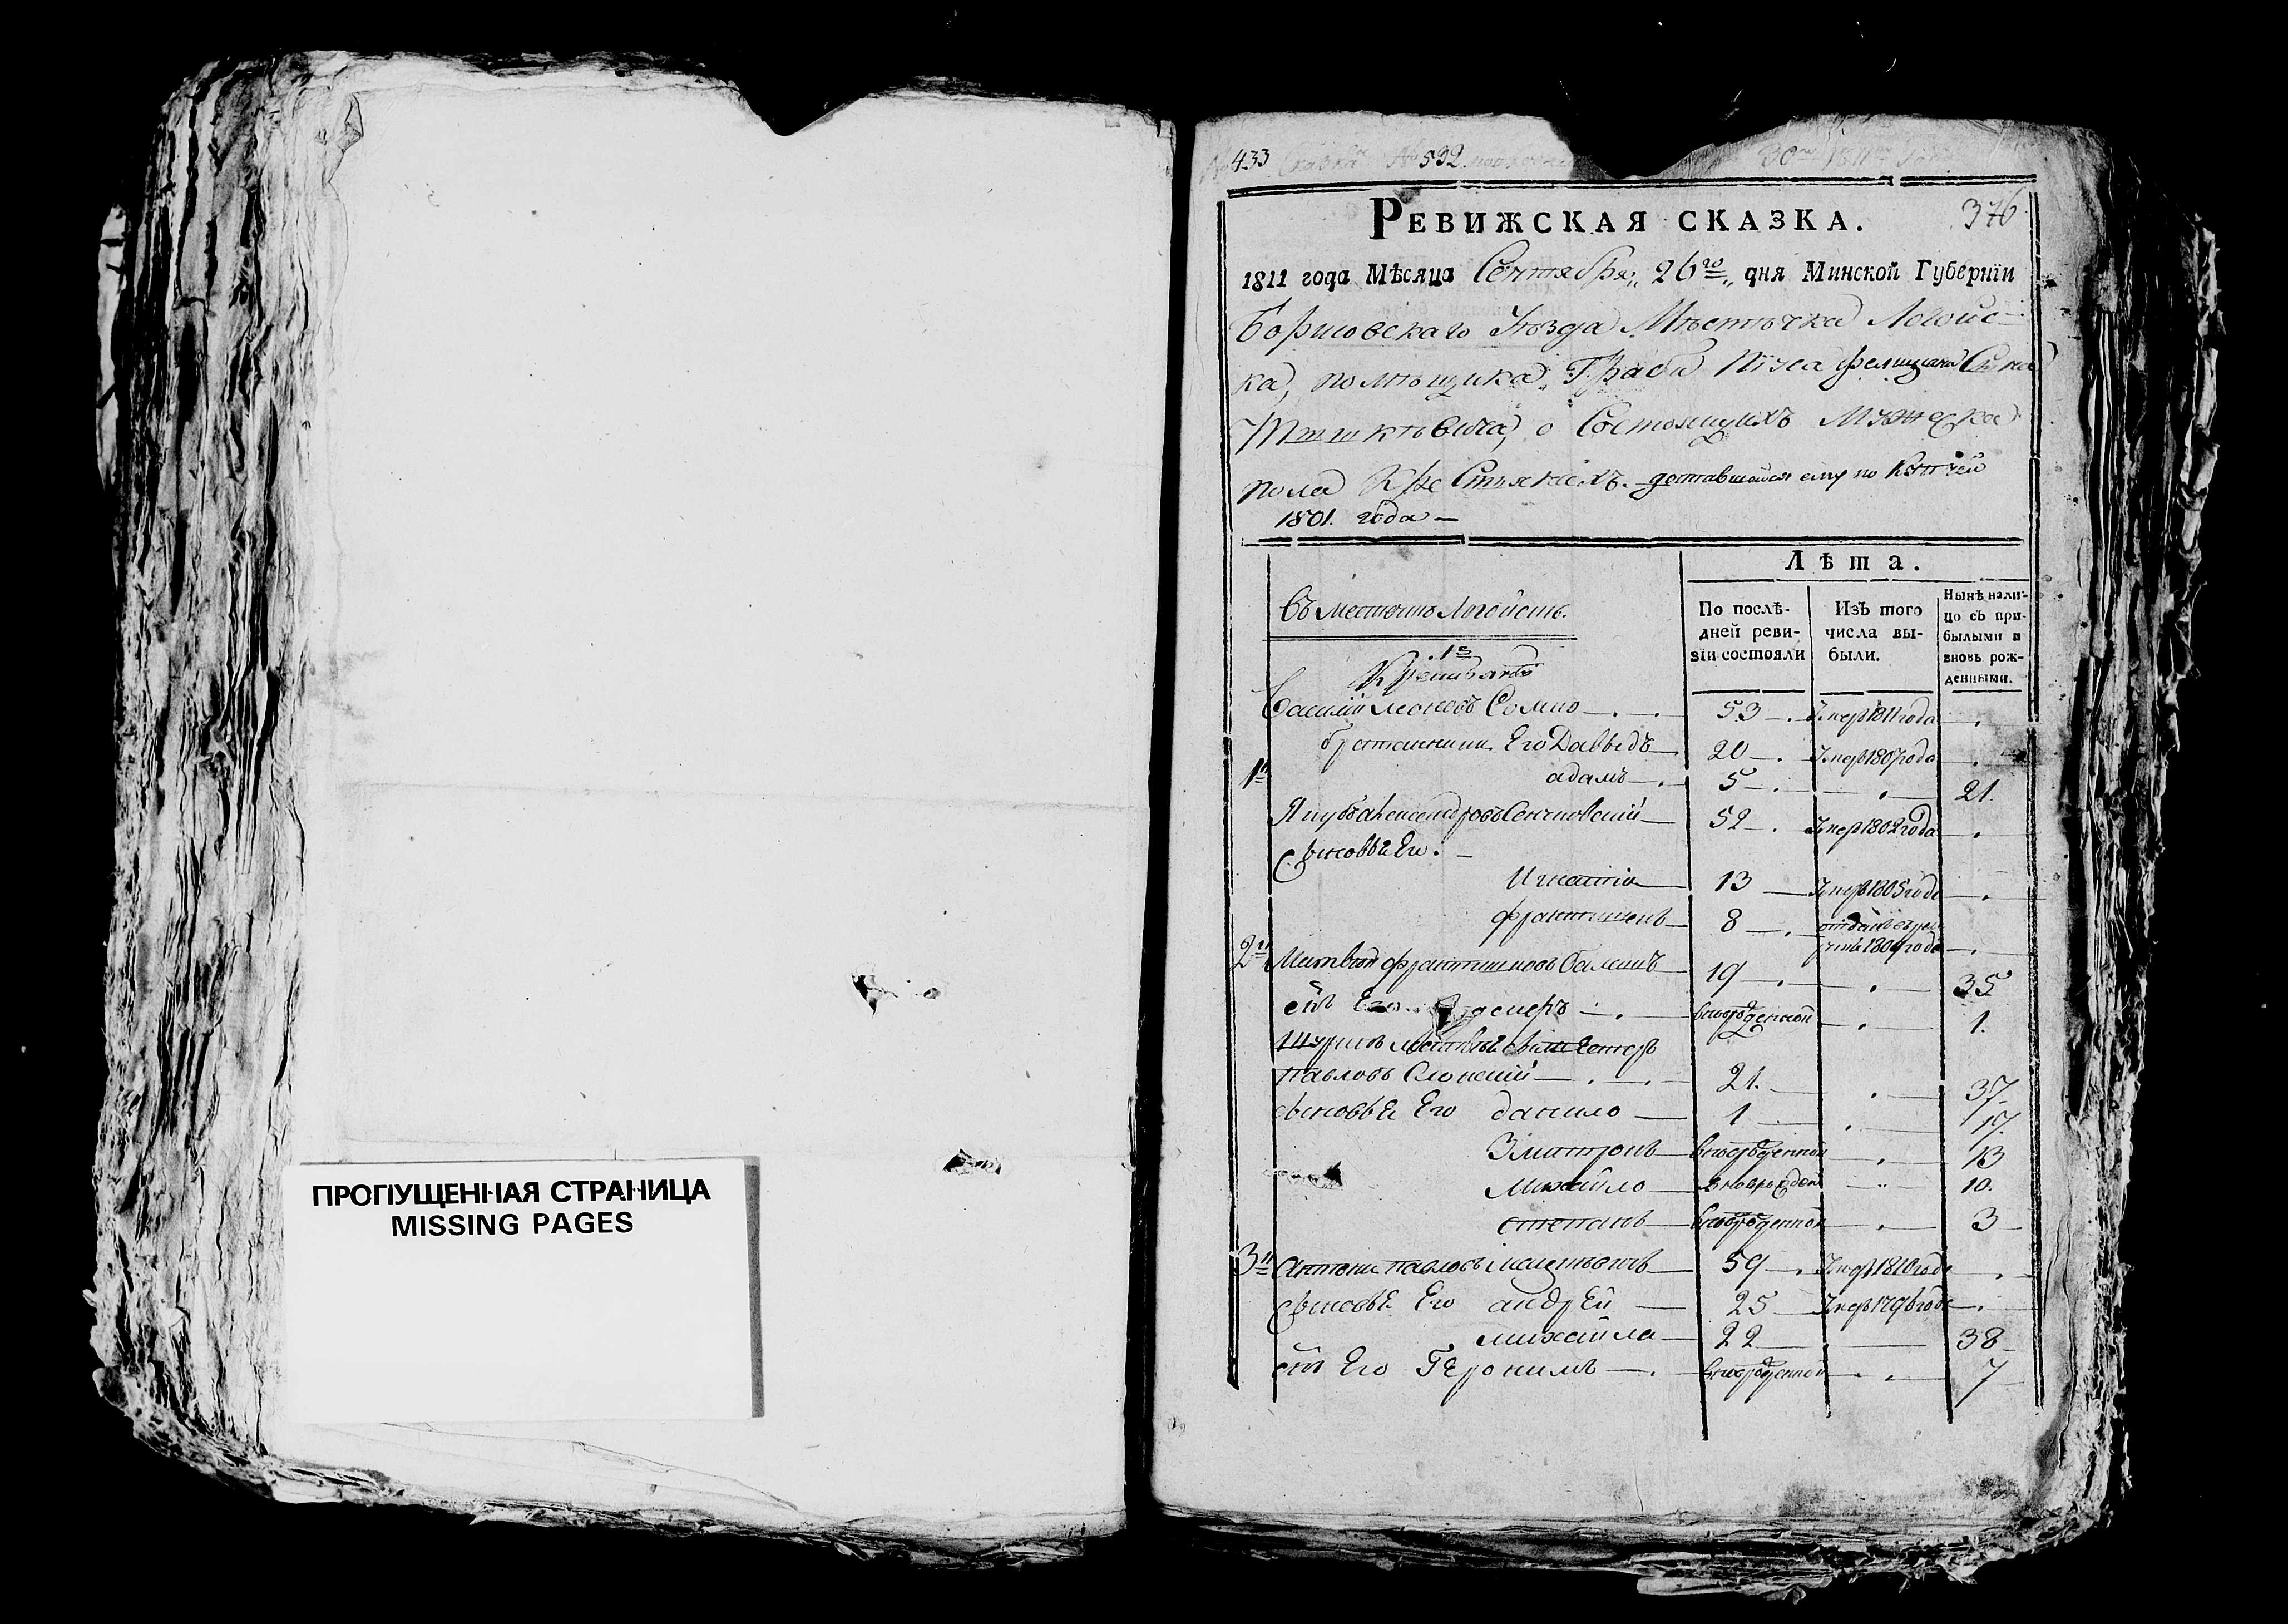 ПРОПУЩЕННАЯ СТРАНИЦА
MISSING PAGES
№ 433 Сказка № 592 30го 1811го Года
376
РЕВИЖСКАЯ СКАЗКА.
1811 года Мѣсяца Сентября 26го дня Минской Губерніи
Борисовскаго Уѣзда Мѣстечка Логойс-
ка, помѣщика, Графа Піуса Фелициана Сына
Тишкѣвича, о Состоящихъ Мужеска
пола Крестьянахъ доставшейся ему по Купчей
1801. года —
Лѣта.
Въ местечкѣ Логойскѣ.
По послѣ-
дней реви-
зіи состояли
Изъ того
числа вы-
были.
Нынѣ нали-
цо съ при-
былыми и
вновь рож-
денными.
1е
Крестьянъ
Василій 53 Умеръ 1811 года
Его Давыдъ 20 Умеръ 1807 года
1й адамъ 5 21
Якубъ Александровъ 52 Умеръ 1802 года
Сыновья Его.
Игнатіи 13 Умеръ 1805 года
Францишекъ 8 отданъ въ рек
руты 1804 года
2й Матвѣй Францишковъ 19 35
сынъ Его вновьрожденной 1.
Шуринъ Матвѣя
павловъ 21. 37
сыновья Его данило 1 17
Зматронъ вновьрожденной 13
Михайло вновьрожден 10.
степанъ вновьрожденной 3
3й Антони павловъ 59 Умеръ 1810 года
Сыновья Его андрей 25 Умеръ 1796 года
михайла 22 38
сынъ Его Геронимъ вновьрожденной 7